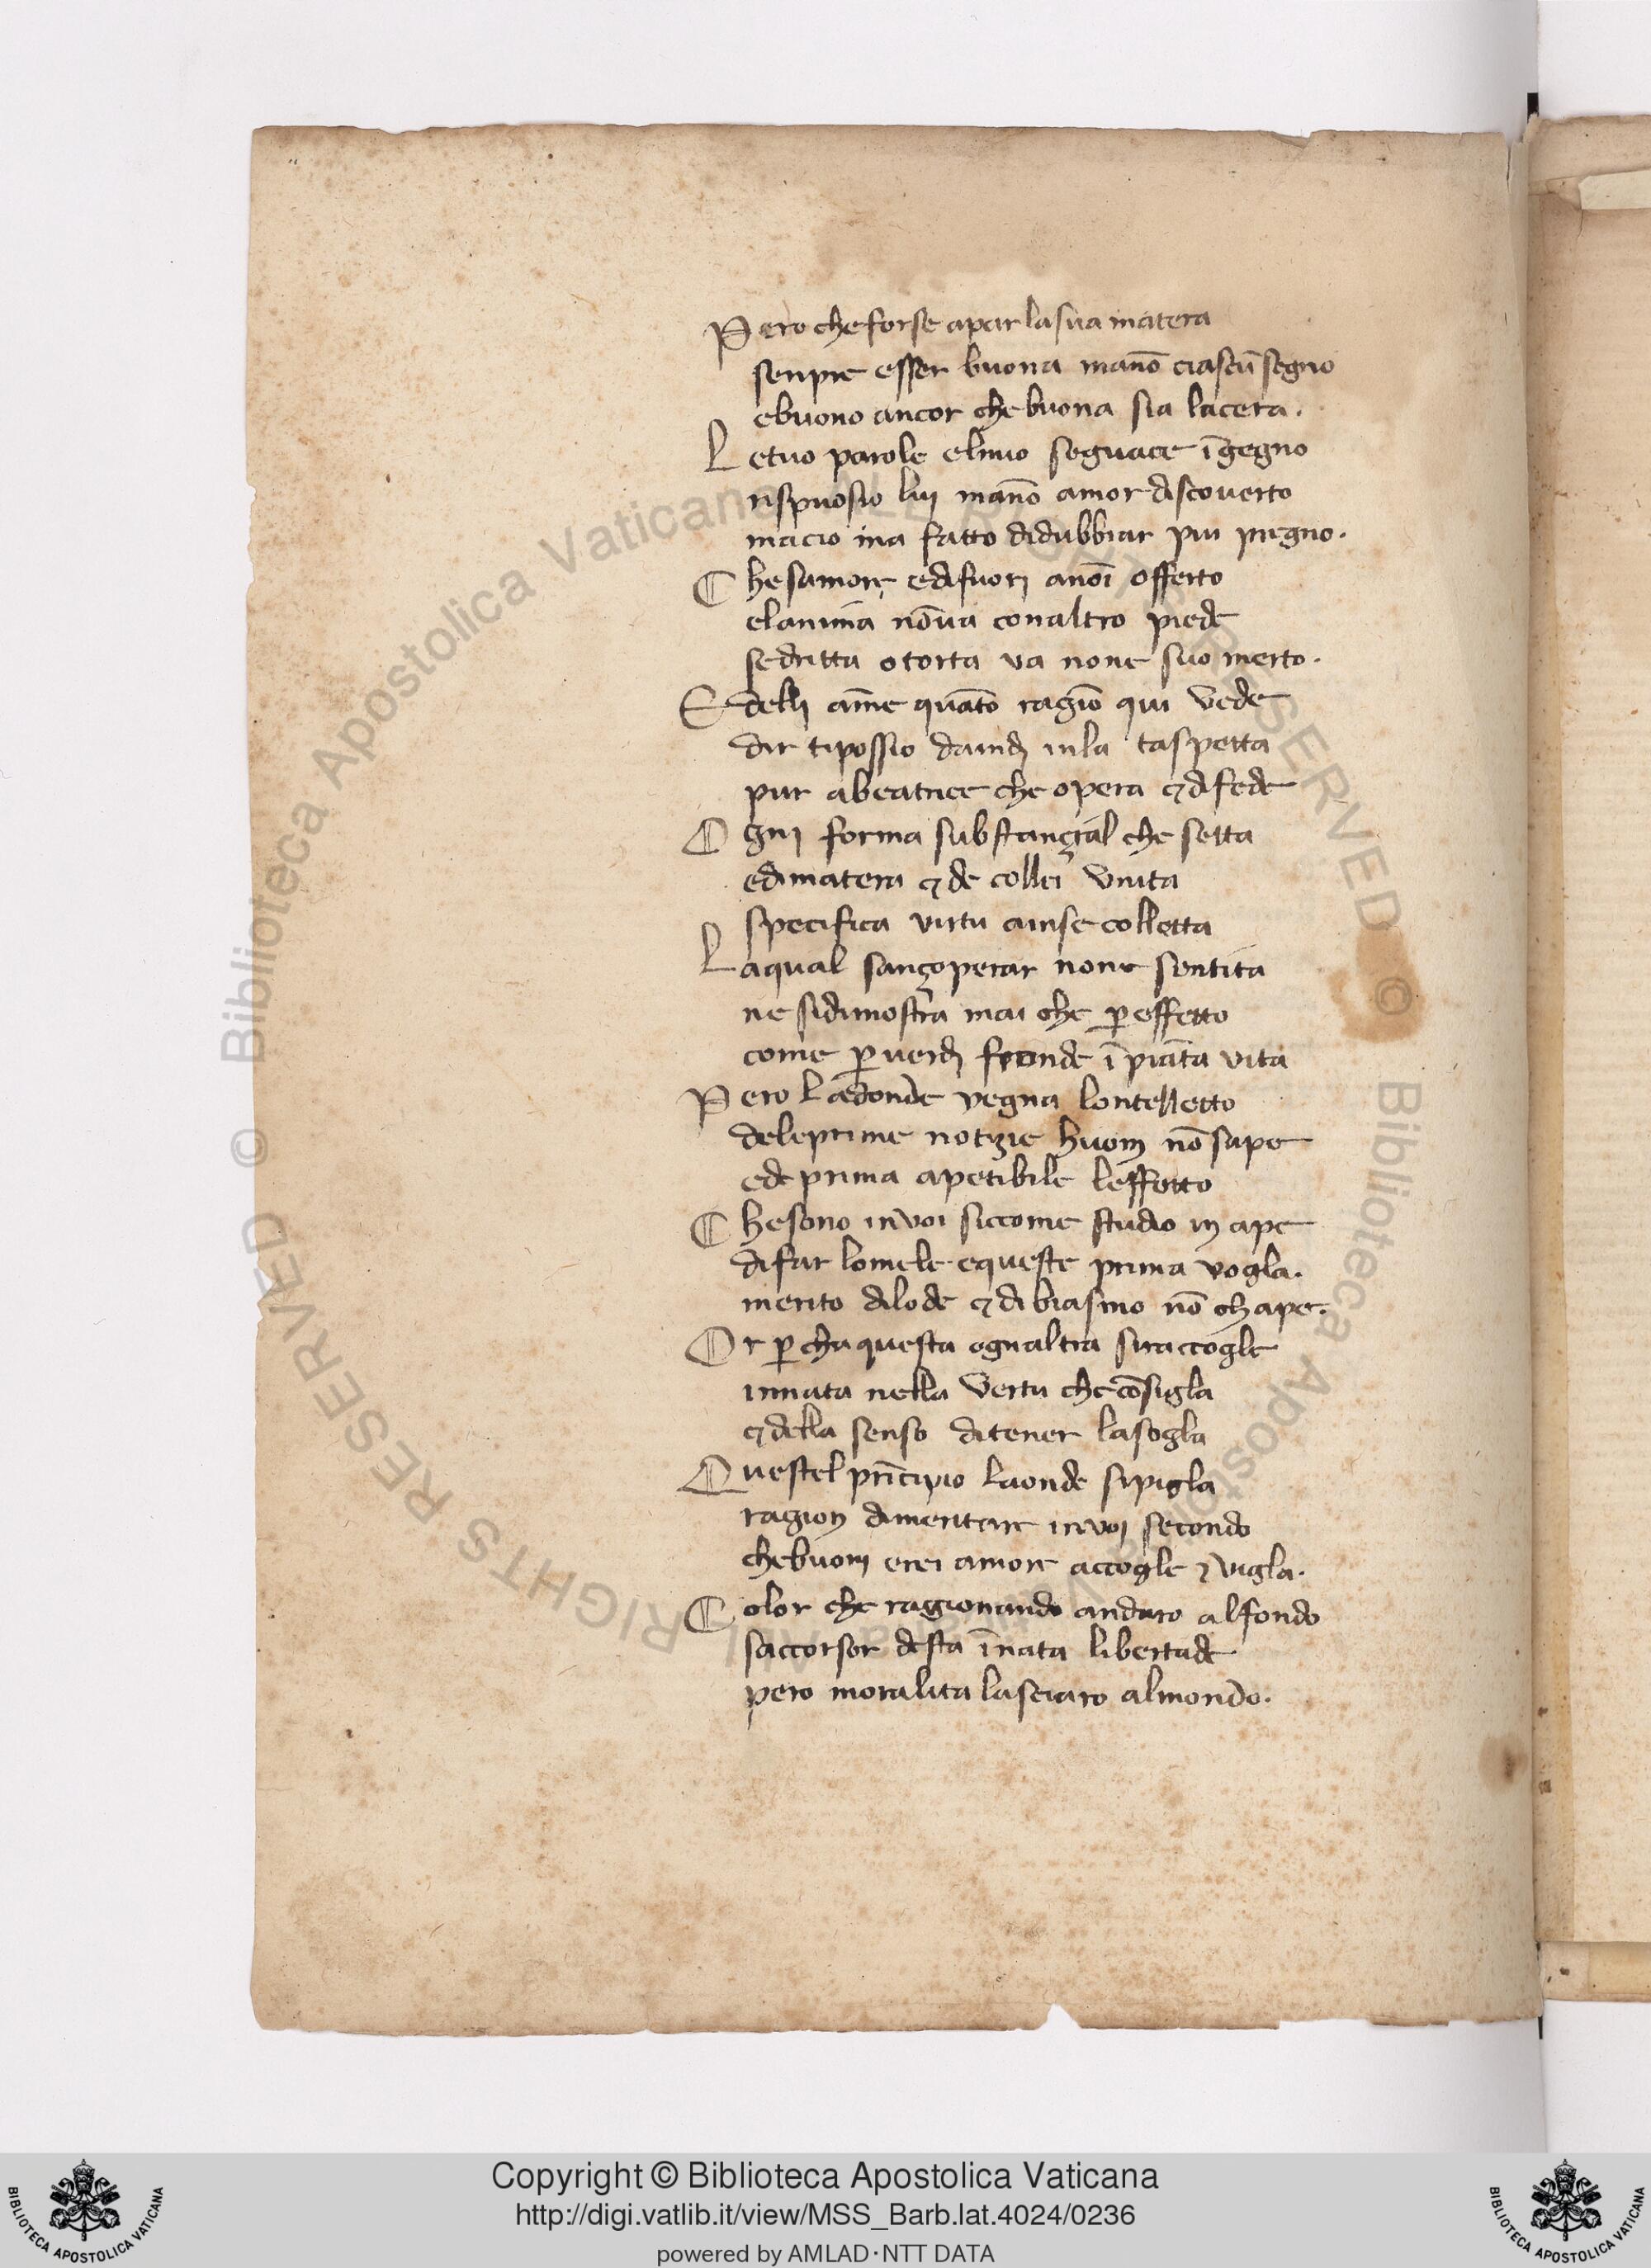 Pero che forse apar la sua matera
senpre esser buona manō ciascū segno
e buono ancor che buona sia la cera.
Le tuo parole el mio seguace īgegno
rispuosio lui manō amor discouerto
ma cio ma fatto di dubbiar piu pregno.
Che samore e di fuori anoī offerto
e lanima nō ua con altro piede
se dritta o torta va none suo merto.
Ed elli ame quāto ragiō qui vede
dir ti possio da indi in la taspetta
pur a beatrice che opera ⁊ di fede
Ogni forma substançial che setta
e di matera ⁊ de collei vnita
specifica virtu a in se colletta
La qual sançoperar none sentita
ne si dimostra mai che ꝑ effetto
come ꝑ uerdi fronde ī piāta vita
Pero la donde vegna lontelletto
de le prime notizie huom nō sape
e de prima apetibile leffetto
Che sono in voi siccome studio in ape
di far lo mele e queste prima vogla.
merito di lode ⁊ di biasmo nō chape.
Or ꝑ cha questa ognaltra si raccogle
innata nella vertu che cōsigla
⁊ della senso di tener la sogla
Questel prīcipio la onde si pigla
ragion di meritare in voi secondo
che buoni e rei amore accogle ⁊ vigla.
Color che ragionando andaro al fondo
saccorser desta īnata libertade
pero moralita lasciaro al mondo.
Copyright © Biblioteca Apostolica Vaticana
http://digi.vatlib.it/view/MSS_Barb.lat.4024/0236
powered by AMLAD·NTT DATA
BIBLIOTECA APOSTOLICA VATICANA
BIBLIOTECA APOSTOLICA VATICANA
© Biblioteca Apostolica Vaticana ALL RIGHTS RESERVED
© Biblioteca Apostolica Vaticana ALL RIGHTS RESERVED